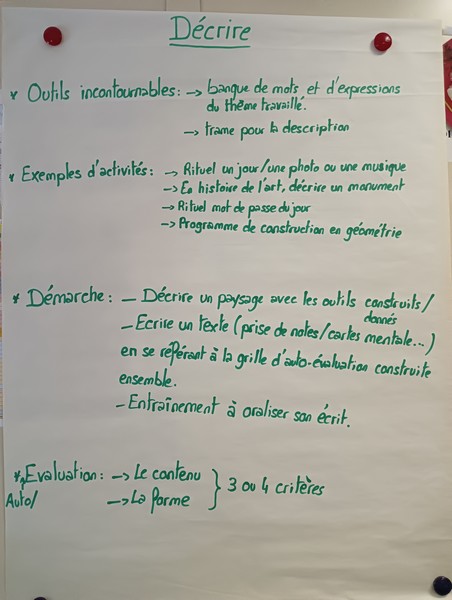 Décrire
* Outils incontournables : → banque de mots et d'expressions
du thème travaillé.
→ trame pour la description
* Exemples d'activités : → Rituel un jour/une photo ou une musique
→ En histoire de l'art, décrire un monument
→ Rituel mot de passe du jour
→ Programme de construction en géométrie
* Démarche : - Décrire un paysage avec les outils construits/
donnés
- Ecrire un texte (prise de notes/cartes mentale...)
en se répérant à la grille d'auto-évaluation construite
ensemble.
- Entraînement à oraliser son écrit.
* Evaluation : → Le contenu } 3 ou 4 critères
Auto/ → La forme